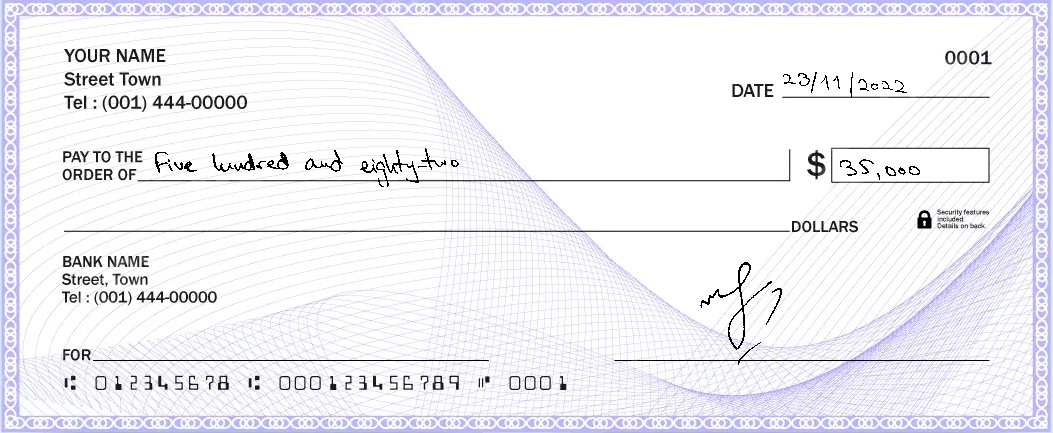 YOUR NAME
0001
Street Town
Tel : (001) 444-00000
DATE 23/11/2022
PAY TO THE ORDER OF Five hundred and eighty-two $ 35,000
DOLLARS
Security features
included.
Details on back.
BANK NAME
Street, Town
Tel : (001) 444-00000
FOR
⑆ 012345678 ⑆ 000123456789 ⑈ 0001